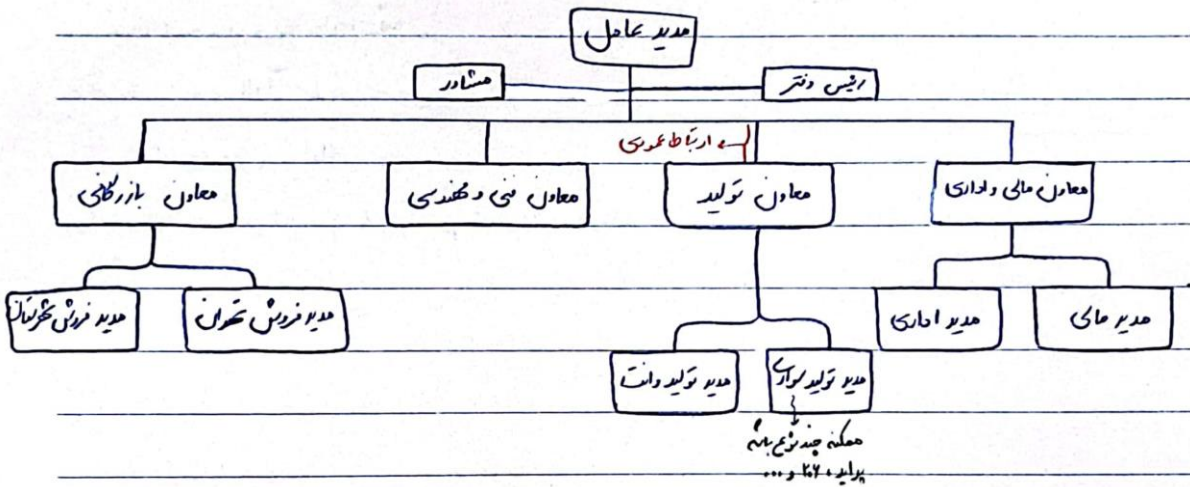 مدیر عامل
رئیس دفتر
مشاور
ارتباط عمودی
معاون مالی و اداری
معاون تولید
معاون فنی و مهندسی
معاون بازرگانی
مدیر مالی
مدیر اداری
مدیر فروش تهران
مدیر فروش شهرستان
مدیر تولید سواری
مدیر تولید وانت
ممکنه چند نوع باشه
پراید، ۲۰۶ و ...